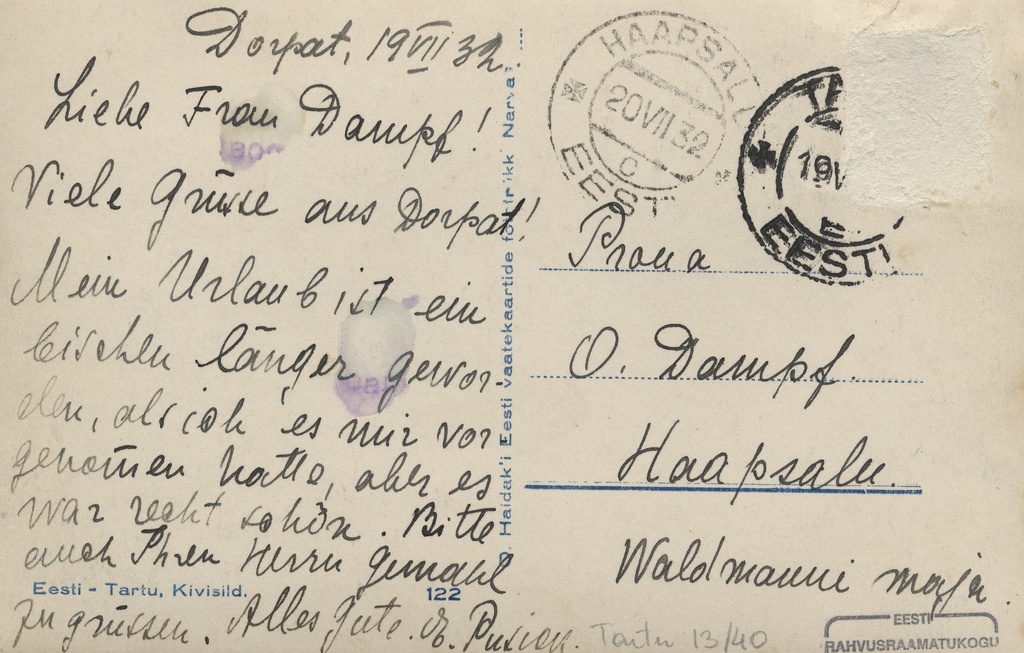 Dorpat, 19 VII 32.
Liebe Frau Dampf!
Viele Grüsse aus Dorpat!
Mein Urlaub ist ein
bischen länger gewor-
den, als ich es mir vor
genom̄en hatte, aber es
war recht schön. Bitte
auch Ihren Herrn Gemahl
zu grüssen. Alles Gute.
Eesti - Tartu, Kivisild.
122
Haidak'i Eesti vaatekaartide Narva
HAAPSALU
20 VII 32
EESTI
19 V
E
EESTI
Proua
O. Dampf.
Haapsalu.
Waldmanni maja.
Tartu 13/40
EESTI
RAHVUSRAAMATUKOGU